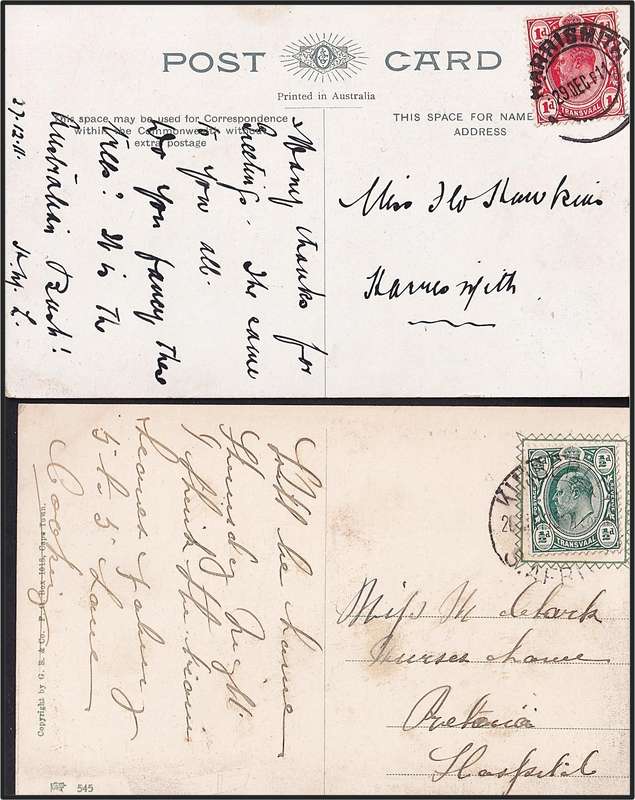 POST CARD
Printed in Australia
This space may be used for Correspondence
within the Commonwealth without
extra postage
THIS SPACE FOR NAME
ADDRESS
HARRISMITH
29 DEC
POSTAGE
1d 1d
TRANSVAAL
27-12-11.
Many thanks for
Greetings. The same
to you all.
Do you fancy these
trees? It is the
Australian Bush!
Miss Flo Hawkins
Harrismith
Will be home
Thursday Night
I think the train
leaves
Love
Cook
Copyright by G. B. & Co. P. O. Box 1018, Cape Town.
545
½d ½d
TRANSVAAL
S. AFRI
Miss M Clark
Nurses Home
Pretoria
Hospital